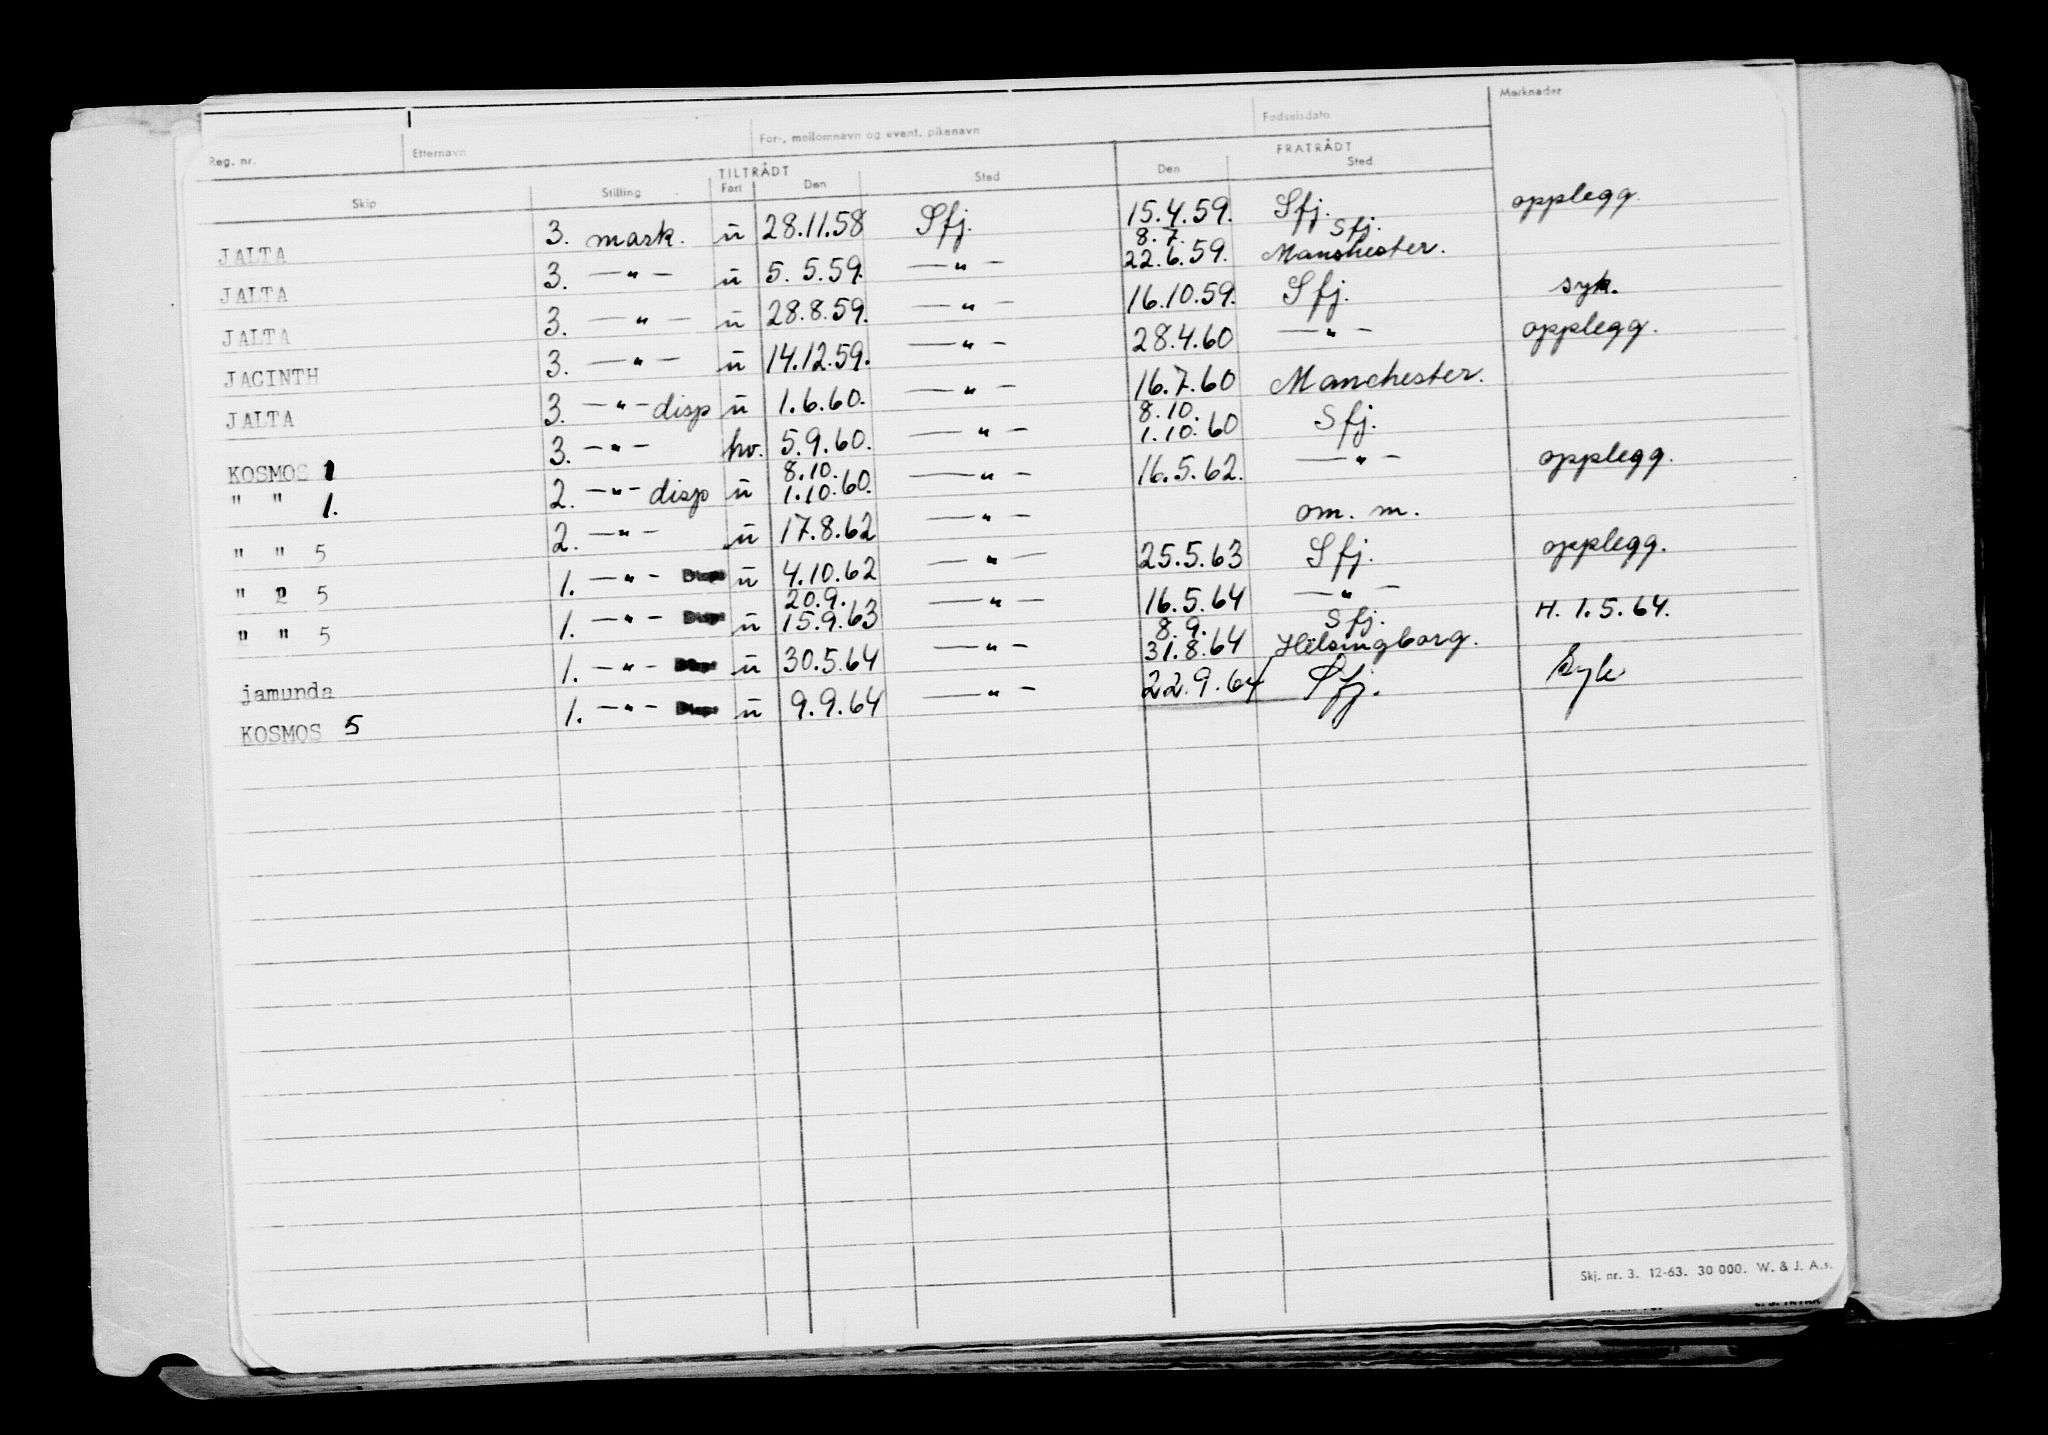 Reg. nr. Etternavn For-, mellomnavn og event. pikenavn Fødselsdato Merknader
TILTRÅDT FRATRÅDT
Skip Stilling Fart Den Sted Den Sted
JALTA 3. mask. u 28.11.58 Sfj. 15.4.59. Sfj. opplegg.
8.7. Sfj.
JALTA 3. —"— u 5.5.59. —"— 22.6.59. Manchester.
JALTA 3. —"— u 28.8.59. —"— 16.10.59. Sfj. syk.
JACINTH 3. —"— u 14.12.59. —"— 28.4.60 —"— opplegg.
JALTA 3. —"— disp u 1.6.60. —"— 16.7.60 Manchester.
8.10.
KOSMOS 1 3. —"— hv. 5.9.60. —"— 1.10.60 Sfj.
8.10.
" " 1. 2. —"— disp u 1.10.60. —"— 16.5.62. —"— opplegg.
" " 5 2. —"— u 17.8.62 —"— om. m.
" " 5 1. —"— Disp u 4.10.62 —"— 25.5.63 Sfj. opplegg.
20.9.
" " 5 1. —"— Disp u 15.9.63 —"— 16.5.64 —"— H. 1.5.64.
8.9. Sfj.
jamunda 1. —"— Disp u 30.5.64 —"— 31.8.64 Helsingborg.
KOSMOS 5 1. —"— Disp u 9.9.64 —"— 22.9.64 Sfj. Syk
Skj. nr. 3. 12-63. 30 000. W. & J. A.s.